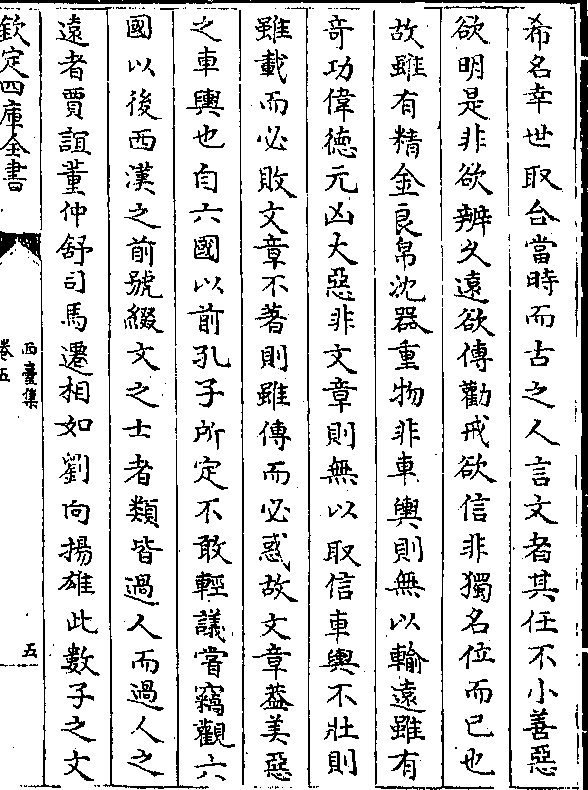 希名幸世取合當時而古之人言文者其任不小善惡
欲明是非欲辨久遠欲傳勸戒欲信非獨名位而已也
故雖有精金良帛沈器重物非車輿則無以輸遠雖有
奇功偉德元凶大惡非文章則無以取信車輿不壯則
雖載而必敗文章不著則雖傳而必惑故文章葢美惡
之車輿也自六國以前孔子所定不敢輕議嘗竊觀六
國以後西漢之前號綴文之士者類皆過人而過人之
遠者賈誼董仲舒司馬遷相如劉向揚雄此數子之文
欽定四庫全書
西臺集
卷五
五